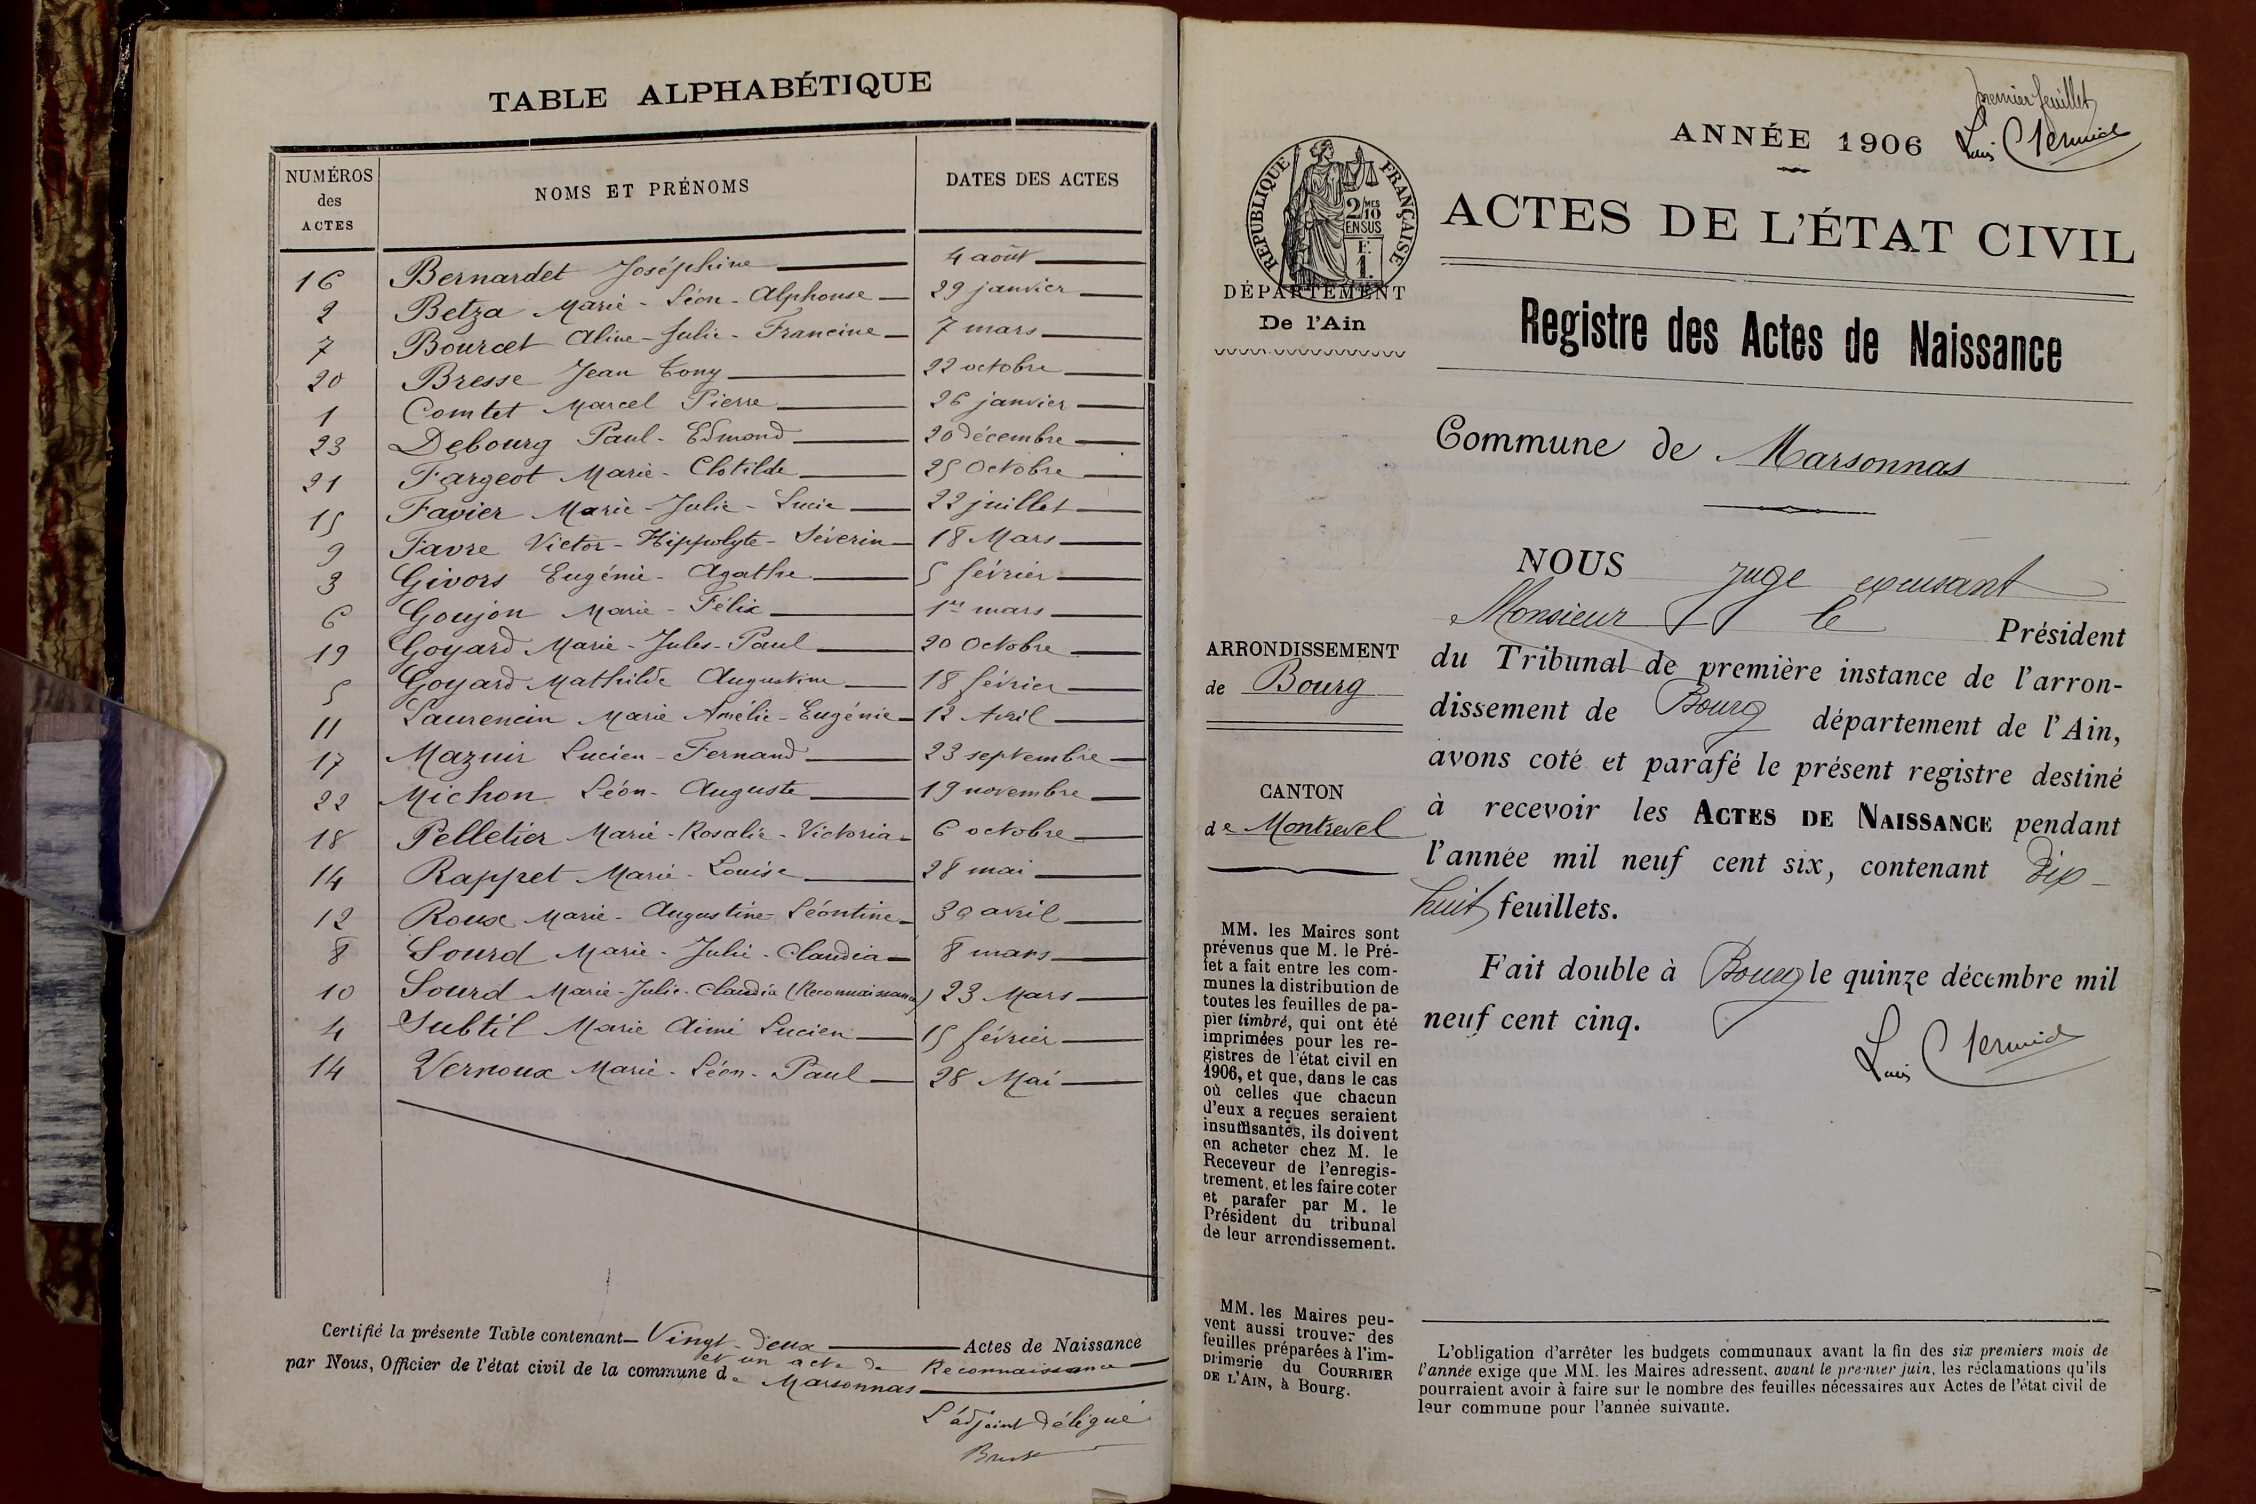 TABLE ALPHABÉTIQUE
NUMÉROS des ACTES
NOMS ET PRÉNOMS
DATES DES ACTES
16 Bernardet Joséphine 4 août
2 Betza Marie - Léon - Alphonse 29 janvier
7 Bourcet Aline - Julie - Francine 7 mars
20 Bresse Jean Tony 22 octobre
1 Comtet Marcel Pierre 26 janvier
23 Debourg Paul - Edmond 20 décembre
21 Fargeot Marie - Clotilde 25 Octobre
15 Favier Marie - Julie - Lucie 22 juillet
9 Favre Victor - Hippolyte - Séverin 18 Mars
3 Givors Eugénie - Agathe 5 février
6 Goujon Marie - Félix 1er mars
19 Goyard Marie - Jules - Paul 20 Octobre
5 Goyard Mathilde Augustine 18 février
11 Laurencin Marie Amélie - Eugénie 12 Avril
17 Mazuir Lucien - Fernand 23 septembre
22 Michon Léon - Auguste 19 novembre
18 Pelletier Marie - Rosalie - Victoria 6 octobre
14 Rappet Marie - Louise 28 mai
12 Roux Marie - Augustine - Léontine 30 avril
8 Sourd Marie - Julie - Claudia 8 mars
10 Sourd Marie - Julie - Claudia (Reconnaissance) 23 Mars
4 Subtil Marie Aimé Lucien 15 février
14 Vernoux Marie - Léon - Paul 28 Mai
Certifié la présente Table contenant Vingt-deux Actes de Naissance
et un acte de Reconnaissance
par Nous, Officier de l'état civil de la commune de Marsonnas
L'adjoint délégué
premier feuillet
ANNÉE 1906
RÉPUBLIQUE FRANÇAISE
2/10 MES
EN SUS
F.
1.
ACTES DE L'ÉTAT CIVIL
DÉPARTEMENT
De l'Ain
Registre des Actes de Naissance
Commune de Marsonnas
ARRONDISSEMENT
de Bourg
CANTON
de Montrevel
NOUS juge excusant
Monsieur le Président
du Tribunal de première instance de l'arron-
dissement de Bourg département de l'Ain,
avons coté et parafé le présent registre destiné
à recevoir les ACTES DE NAISSANCE pendant
l'année mil neuf cent six, contenant dix-
huit feuillets.
Fait double à Bourg le quinze décembre mil
neuf cent cinq.
MM. les Maires sont
prévenus que M. le Pré-
fet a fait entre les com-
munes la distribution de
toutes les feuilles de pa-
pier timbré, qui ont été
imprimées pour les re-
gistres de l'état civil en
1906, et que, dans le cas
où celles que chacun
d'eux a reçues seraient
insuffisantes, ils doivent
en acheter chez M. le
Receveur de l'enregis-
trement, et les faire coter
et parafer par M. le
Président du tribunal
de leur arrondissement.
MM. les Maires peu-
vent aussi trouver des
feuilles préparées à l'im-
primerie du COURRIER
DE L'AIN, à Bourg.
L'obligation d'arrêter les budgets communaux avant la fin des six premiers mois de
l'année exige que MM. les Maires adressent, avant le premier juin, les réclamations qu'ils
pourraient avoir à faire sur le nombre des feuilles nécessaires aux Actes de l'état civil de
leur commune pour l'année suivante.